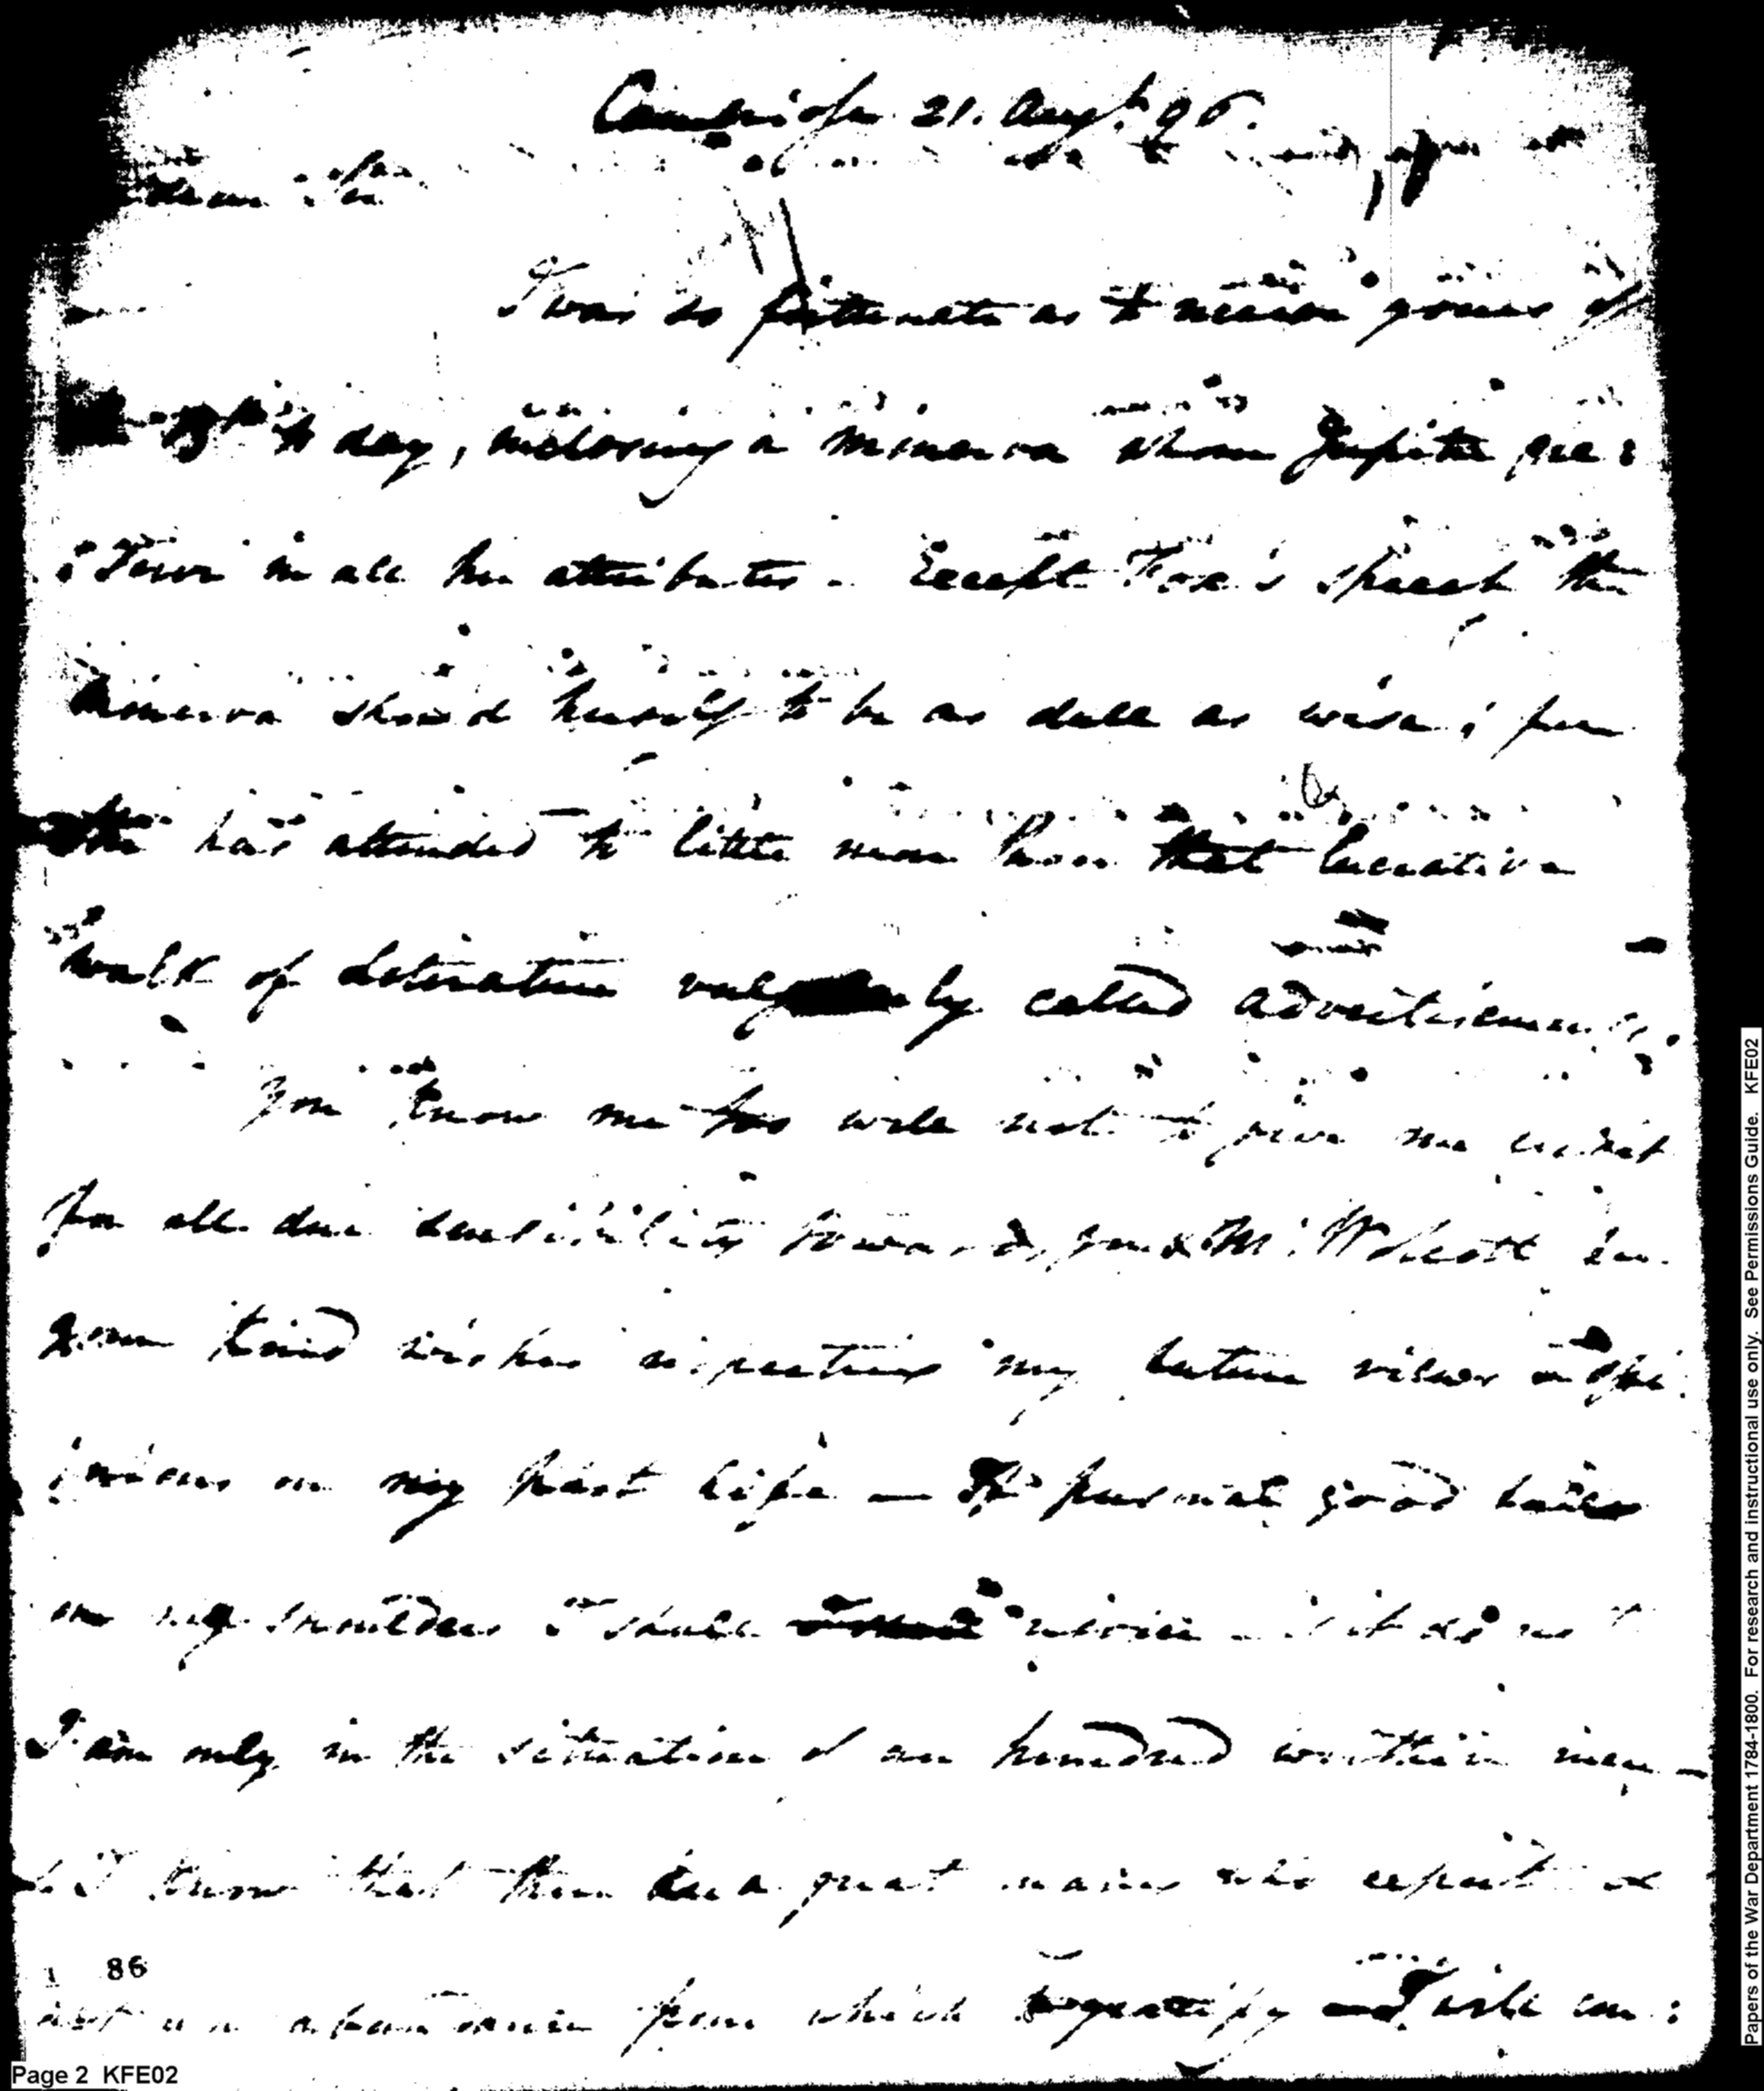 Cambridge 21. Augt. 96.
Dear Sir
I was so fortunate as to receive yours of
to day, inclosing a Minerva whom Jupiter pre:
:serve in all her attributes. Except Fox's speech the
Minerva shewed herself to be as dull as wise; for
she has attended to little more than that lucrative
walk of Literature vulgarly called advertisements.
You know me too well not to give me credit
for all due sensibility towards you & Mr. Wolcott in
your kind wishes respecting my future views
on my past life —
on my shoulders I shall rejoice - if it do not
I am only in the situation of an hundred worthier men —
I know that there are a great many who expect &
abundance from which to gratify
86
Page 2 KFE02
Papers of the War Department 1784-1800. For research and instructional use only. See Permissions Guide. KFE02